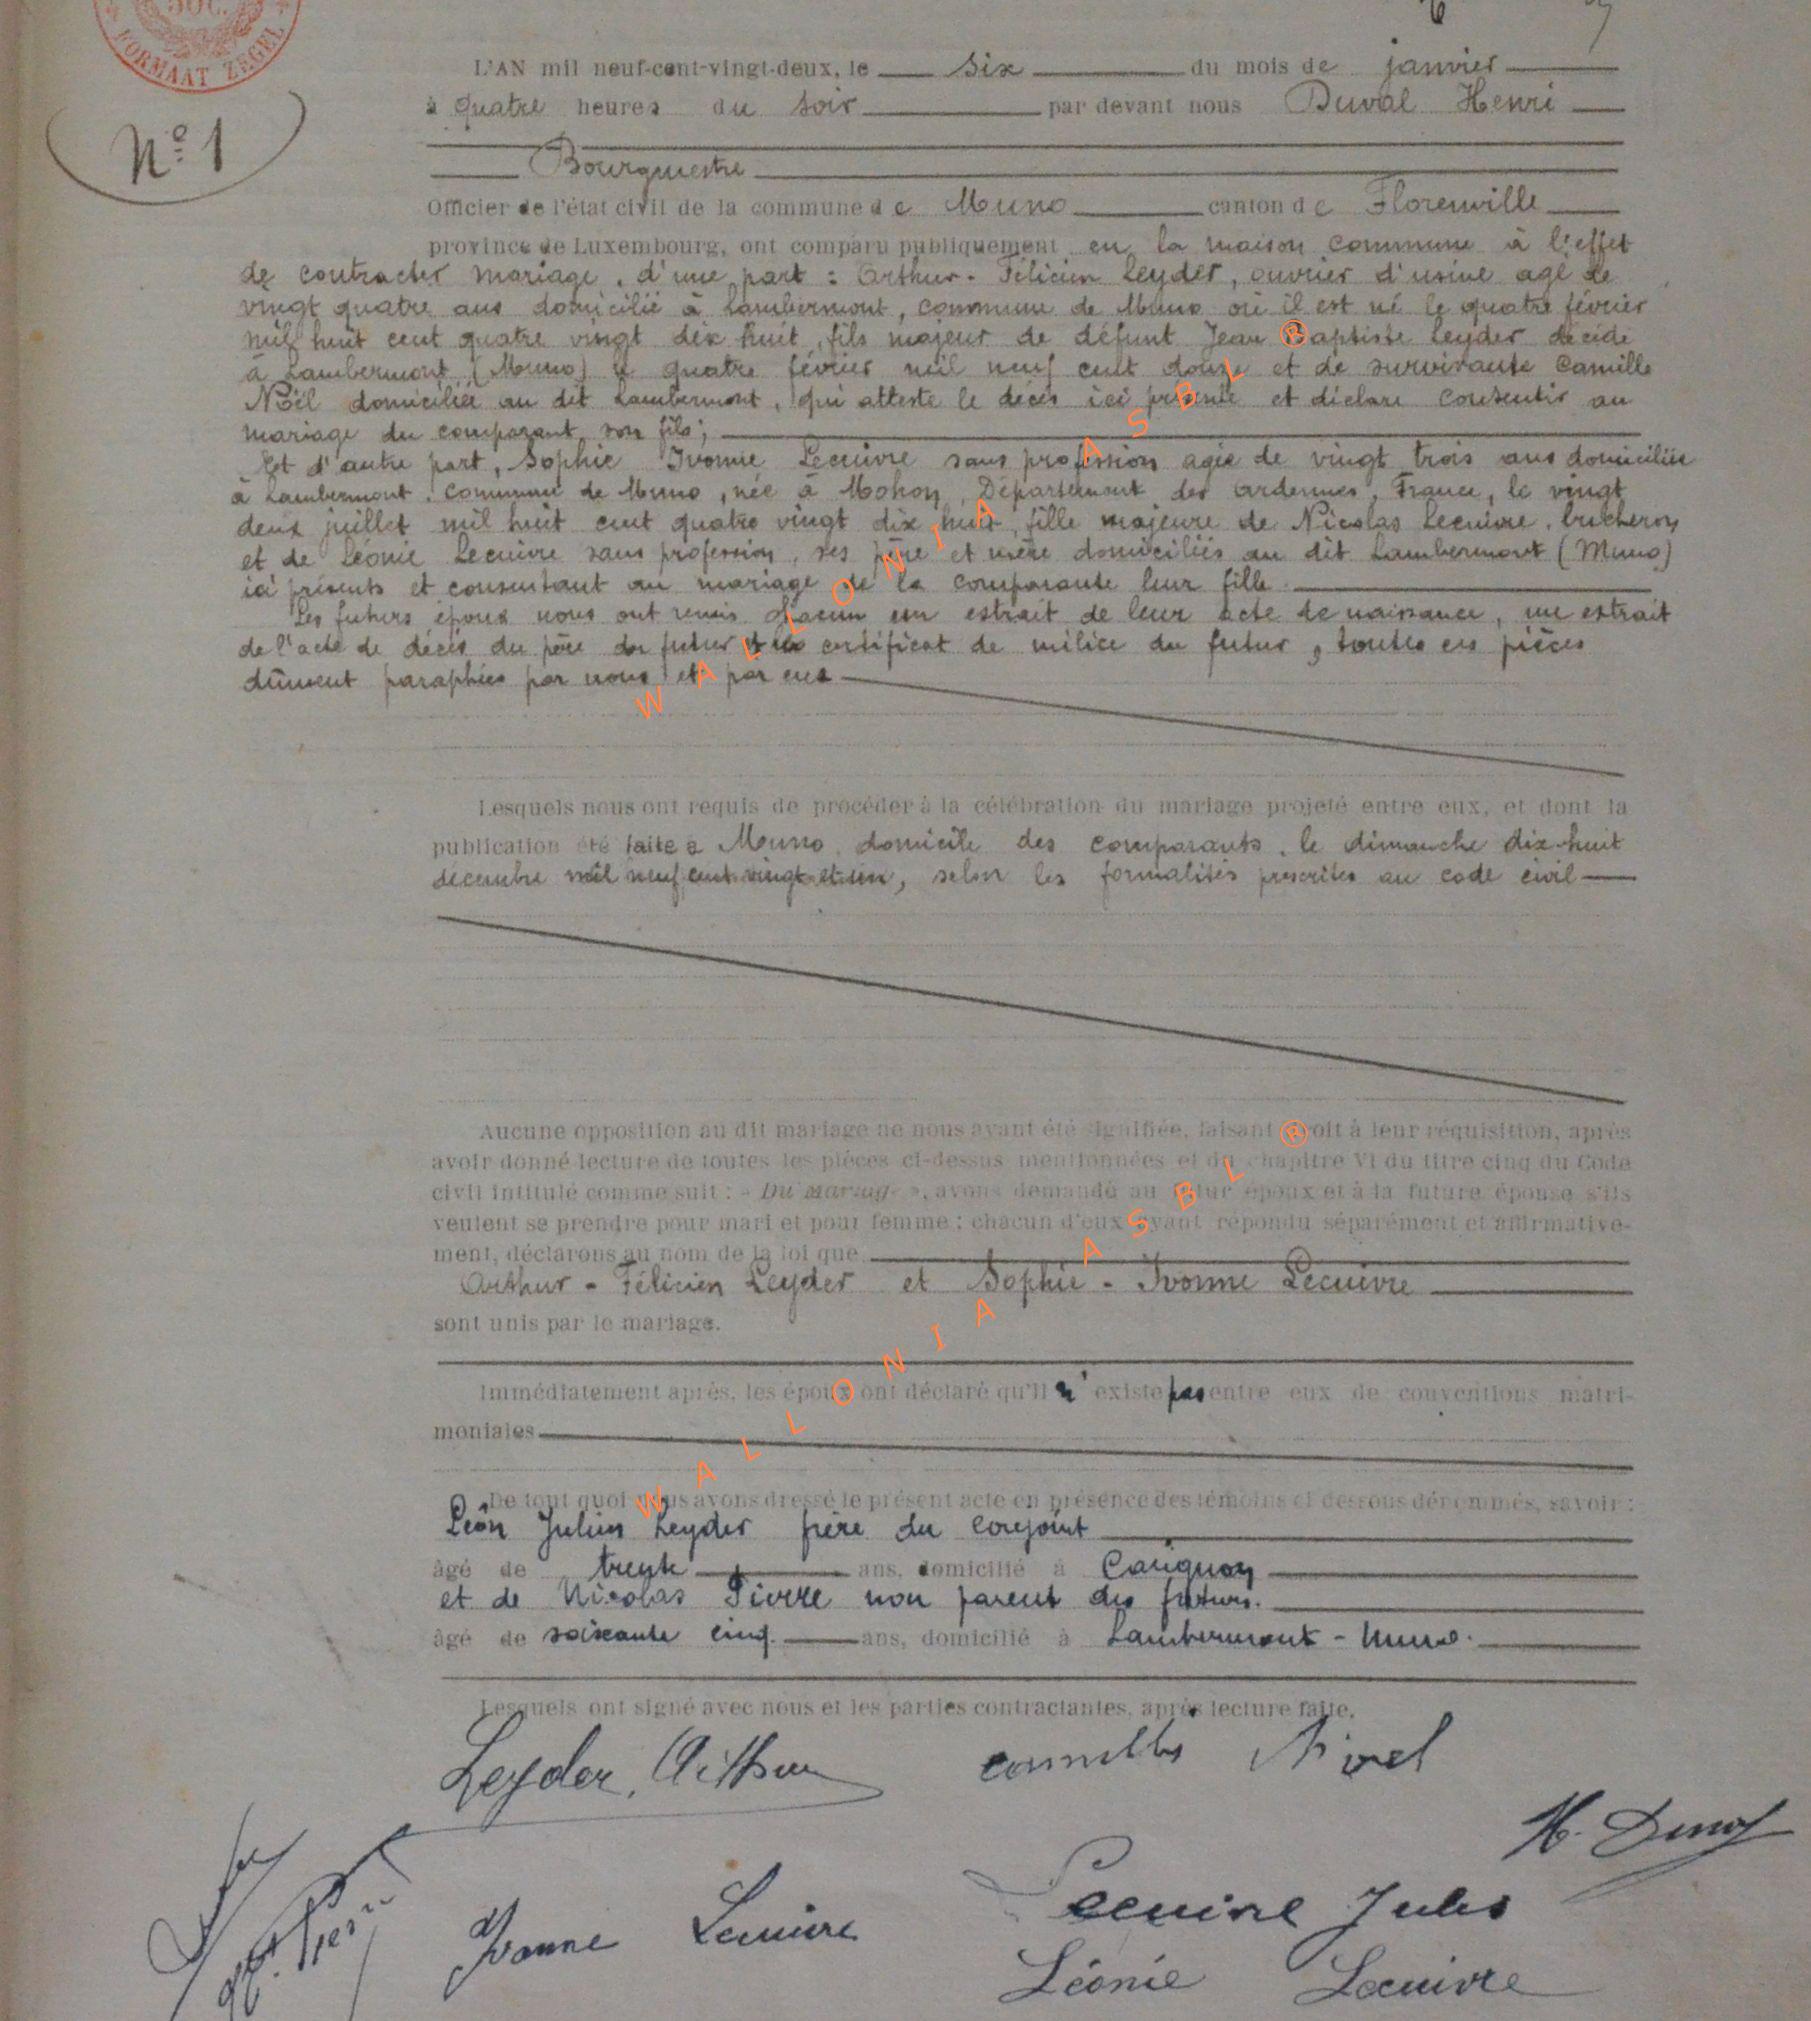 50C.
FORMAAT ZEGEL
L'AN mil neuf-cent-vingt-deux, le six du mois de janvier
à quatre heures du soir par devant nous Duval Henri
N° 1
Bourgmestre
Officier de l'état civil de la commune de Muno canton de Florenville
province de Luxembourg, ont comparu publiquement en la maison commune à l'effet
de contracter mariage, d'une part : Arthur-Félicien Leyder, ouvrier d'usine agé de
vingt quatre ans domicilié à Lambermont, commune de Muno où il est né le quatre février
mil huit cent quatre vingt dix huit, fils majeur de défunt Jean Baptiste Leyder décédé
à Lambermont (Muno) le quatre février mil neuf cent douze et de survivante Camille
Noël domiciliée au dit Lambermont, qui atteste le décès ici présente et déclare consentir au
mariage du comparant son fils;
Et d'autre part, Sophie Ivonne Lecuivre sans profession agée de vingt trois ans domiciliée
à Lambermont, commune de Muno, née à Mohon, Département des Ardennes, France, le vingt
deux juillet mil huit cent quatre vingt dix huit, fille majeure de Nicolas Lecuivre, bucheron
et de Léonie Lecuivre sans profession, ses père et mère domiciliés au dit Lambermont (Muno)
ici présents et consentant au mariage de la comparante leur fille
Les futurs époux nous ont remis chacun un extrait de leur acte de naissance, un extrait
de l'acte de décès du père du futur et un certificat de milice du futur, toutes ces pièces
dûment paraphées par nous et par eux
Lesquels nous ont requis de procéder à la célébration du mariage projeté entre eux, et dont la
publication été faite a Muno domicile des comparants, le dimanche dix-huit
décembre mil neuf cent vingt et un, selon les formalités prescrites au code civil
Aucune opposition au dit mariage ne nous ayant été signifiée, faisant droit à leur réquisition, après
avoir donné lecture de toutes les pièces ci-dessus mentionnées et du chapitre VI du titre cinq du Code
civil intitulé comme suit : « Du Mariage », avons demandé au futur époux et à la future épouse s'ils
veulent se prendre pour mari et pour femme : chacun d'eux ayant répondu séparément et affirmative-
ment, déclarons au nom de la loi que
Arthur-Félicien Leyder et Sophie-Ivonne Lecuivre
sont unis par le mariage.
Immédiatement après, les époux ont déclaré qu'il n'existe pas entre eux de conventions matri-
moniales
De tout quoi nous avons dressé le présent acte en présence des témoins ci dessous dénommés, savoir :
Léon Julien Leyder frère du conjoint
âgé de trente ans, domicilié à Carignan
et de Nicolas Pierre non parent des futurs.
âgé de soixante cinq ans, domicilié à Lambermont - Muno.
Lesquels ont signé avec nous et les parties contractantes, après lecture faite.
Leyder, Arthur
H. Duval
Lecuivre Jules
Yvonne Lecuivre
Léonie Lecuivre
WALLONIA ASBL ®
WALLONIA ASBL ®